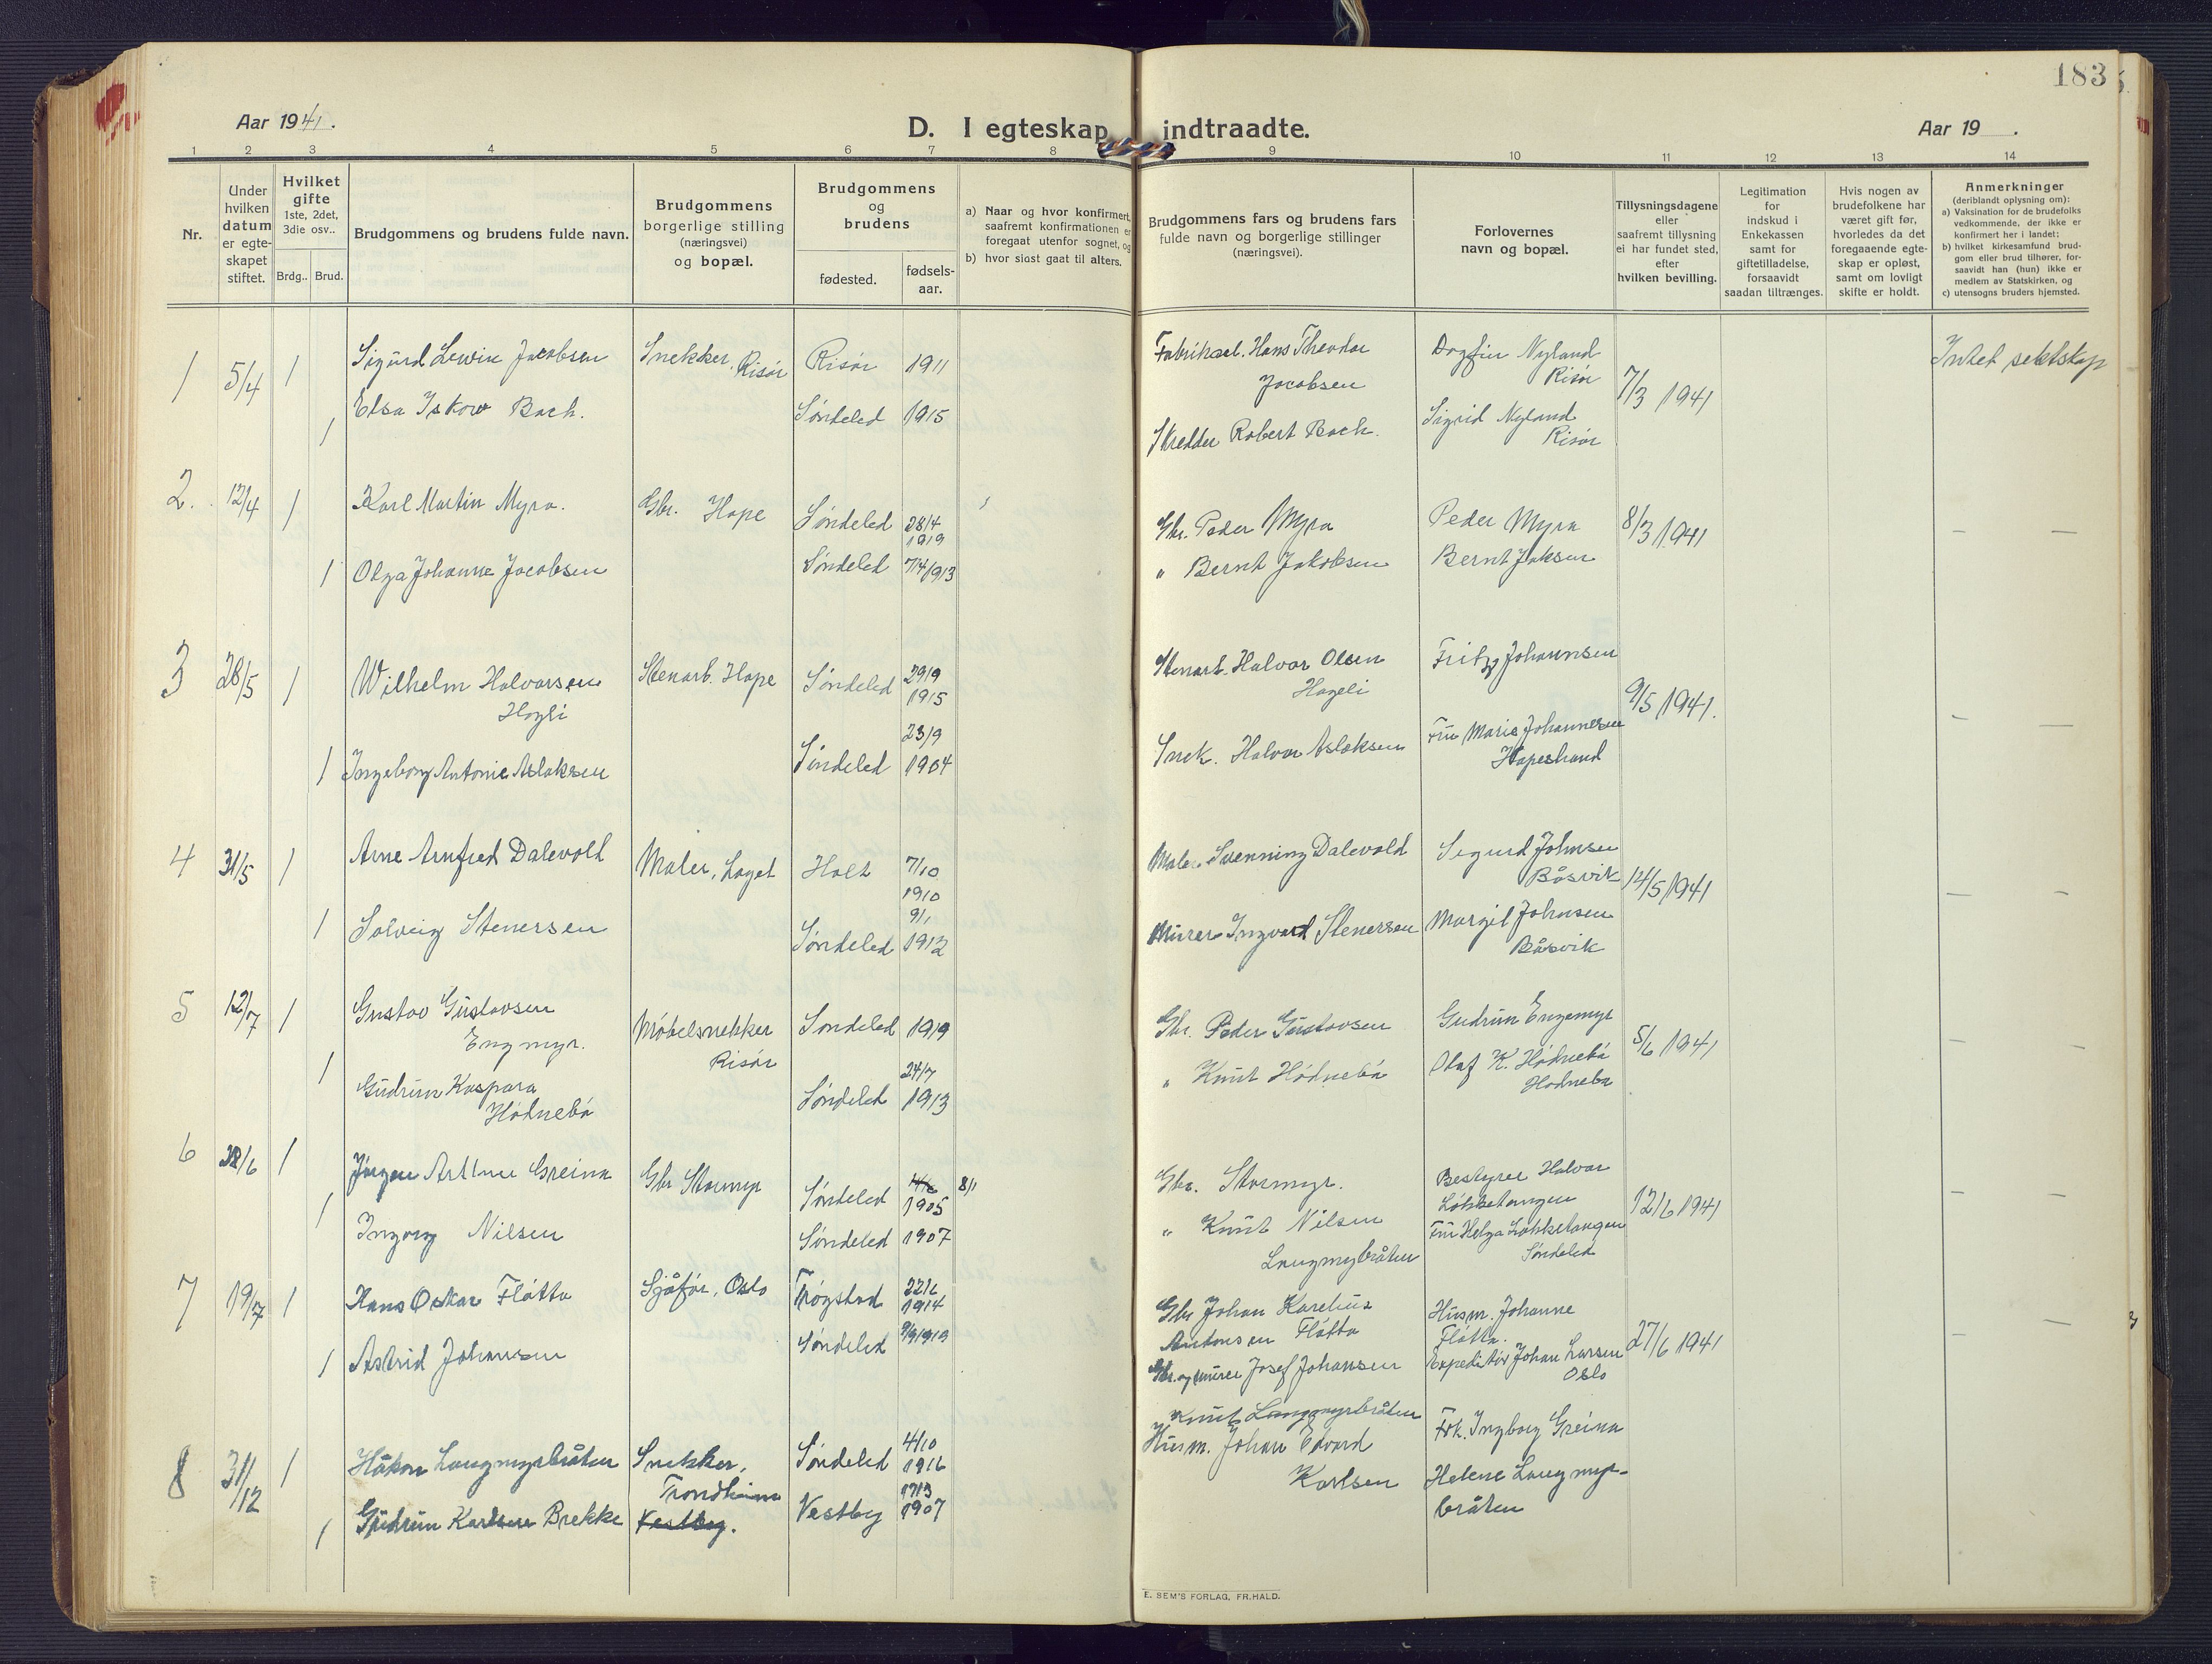 183
Aar 1941.
D. I egteskap indtraadte.
Aar 19 .
1 2 3 4 5 6 7 8 9 10 11 12 13 14
Nr.
Under hvilken datum er egteskapet stiftet.
Hvilket gifte
1ste, 2det, 3die osv..
Brdg.. Brud.
Brudgommens og brudens fulde navn.
Brudgommens borgerlige stilling (næringsvei) og bopæl.
Brudgommens og brudens
fødested.
fødselsaar.
a) Naar og hvor konfirmert, saafremt konfirmationen er foregaat utenfor sognet, og
b) hvor sidst gaat til alters.
Brudgommens fars og brudens fars fulde navn og borgerlige stillinger (næringsvei).
Forlovernes navn og bopæl.
Tillysningsdagene eller saafremt tillysning ei har fundet sted, efter hvilken bevilling.
Legitimation for indskud i Enkekassen samt for giftetilladelse, forsaavidt saadan tiltrænges.
Hvis nogen av brudefolkene har været gift før, hvorledes da det foregaaende egteskap er opløst, samt om lovligt skifte er holdt.
Anmerkninger
(deriblandt oplysning om):
a) Vaksination for de brudefolks vedkommende, der ikke er konfirmert her i landet:
b) hvilket kirkesamfund brudgom eller brud tilhører, forsaavidt han (hun) ikke er medlem av Statskirken, og
c) utensogns bruders hjemsted.
1 5/4 1 Sigurd Lewin Jacobsen Snekker, Risør Risør 1911
1 Elsa Iskow Bach. Søndeled 1915
Fabrikael. Hans Theodor Jacobsen
Skredder Robert Bach.
Dagfin Nyland Risør
Sigrid Nyland Risør
7/3 1941
Intet slektskap
2. 12/4 1 Karl Martin Myra. Gbr. Hope Søndeled 28/4 1919
1 Olga Johanne Jacobsen Søndeled 7/4 1913
Gbr. Peder Myra
" Bernt Jakobsen
Peder Myra
Bernt Jaksen
8/3 1941
— —
3 28/5 1 Wilhelm Halvorsen Hagli Stenarb. Hope Søndeled 29/9 1915
1 Ingeborg Antonie Aslaksen Søndeled 23/9 1904
Stenarb. Halvor Olsen Hageli
Snek. Halvor Aslaksen
Fritz Johannsen
Fru Marie Johannesen Hopestrand
9/5 1941.
— —
4 31/5 1 Arne Arnfred Dalevold Maler, Laget Holt 7/10 1910
1 Solveig Stenersen Søndeled 9/1 1912
Maler Svenning Dalevold
Murer Ingvard Stenersen
Sigurd Johnsen Båsvik
Margit Johnsen Båsvik
14/5 1941
— —
5 12/7 1 Gustav Gustavsen Engmyr. Møbelsnekker Risør Søndeled 1919
1 Gudrun Kaspara Hødnebø Søndeled 24/7 1913
Gbr. Peder Gustavsen
" Knut Hødnebø
Gudrun Engemyr
Olaf K. Hødnebø Hødnebø
5/6 1941
— —
6 28/6 1 Jørgen Arthur Greina Gbr Stormyr Søndeled 1905 8/1
1 Ingborg Nilsen Søndeled 1907
Gbr. Stormyr.
" Knut Nilsen Laugmyrbråten
Bestyrer Halvor Løkketangen
Fru Helga Løkketangen Søndeled
12/6 1941
— —
7 19/7 1 Hans Oskar Fløtta Sjåfør, Oslo Trøgstad 22/6 1914
1 Astrid Johansen Søndeled 9/9 1913
Gbr Johan Karelius Antonsen Fløtta
Gbr. og murer Josef Johansen
Husm. Johanne Fløtta.
Expeditør Johan Larsen Oslo
27/6 1941
— —
8 31/12 1 Håkon Laugmyrbråten Snekker, Trondheim Søndeled 4/10 1916
1 Gudrun Karlsen Brekke Vestby. Vestby 17/3 1907
Knut Laugmyrbråten
Husm. Johan Edvard Karlsen
Frk. Ingborg Greina
Helene Laugmyrbråten
E. SEM'S FORLAG, FR.HALD.